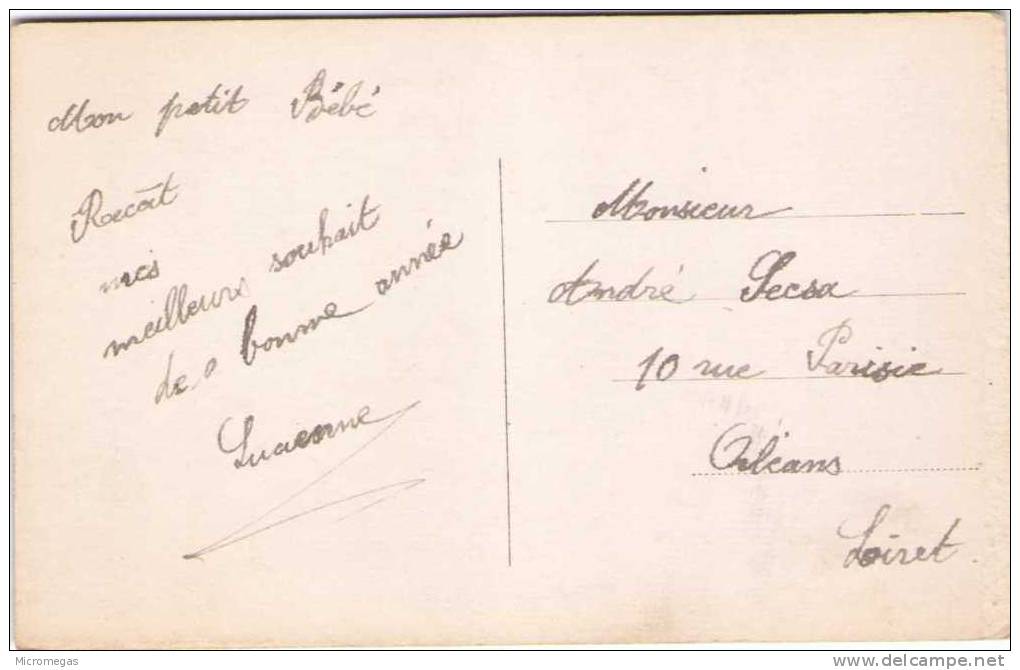 Mon petit Bébé
Recoit
mes
meilleurs souhait
de bonne année
Lucienne
Monsieur
André Secsa
10 rue Parisie
Orléans
Loiret
Micromegas
delcampe.net